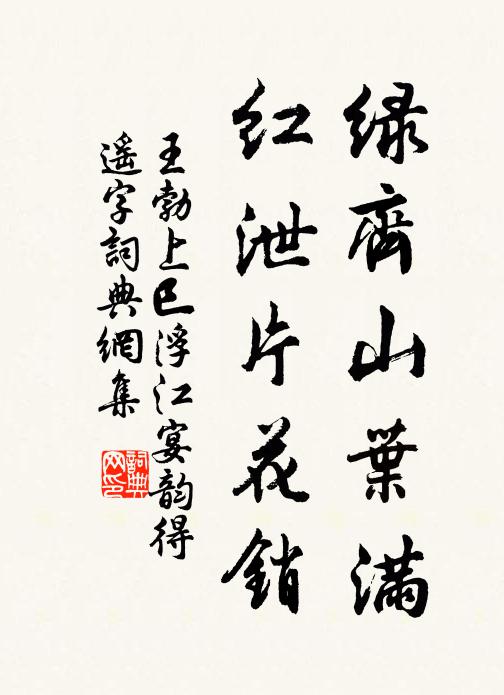 绿齊山葉滿
红泄片花銷
王勃上巳浮江宴韵得
遥字詞典網集
詞典网印